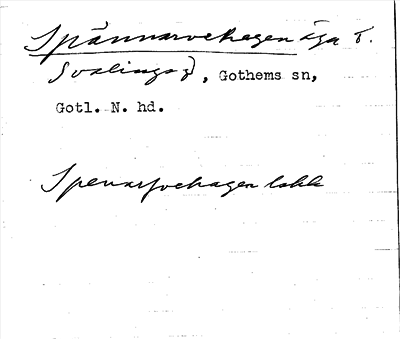 Spännarvehagen äga t.
Svalings, Gothems sn,
Gotl. N. hd.
Spenarfvehagen